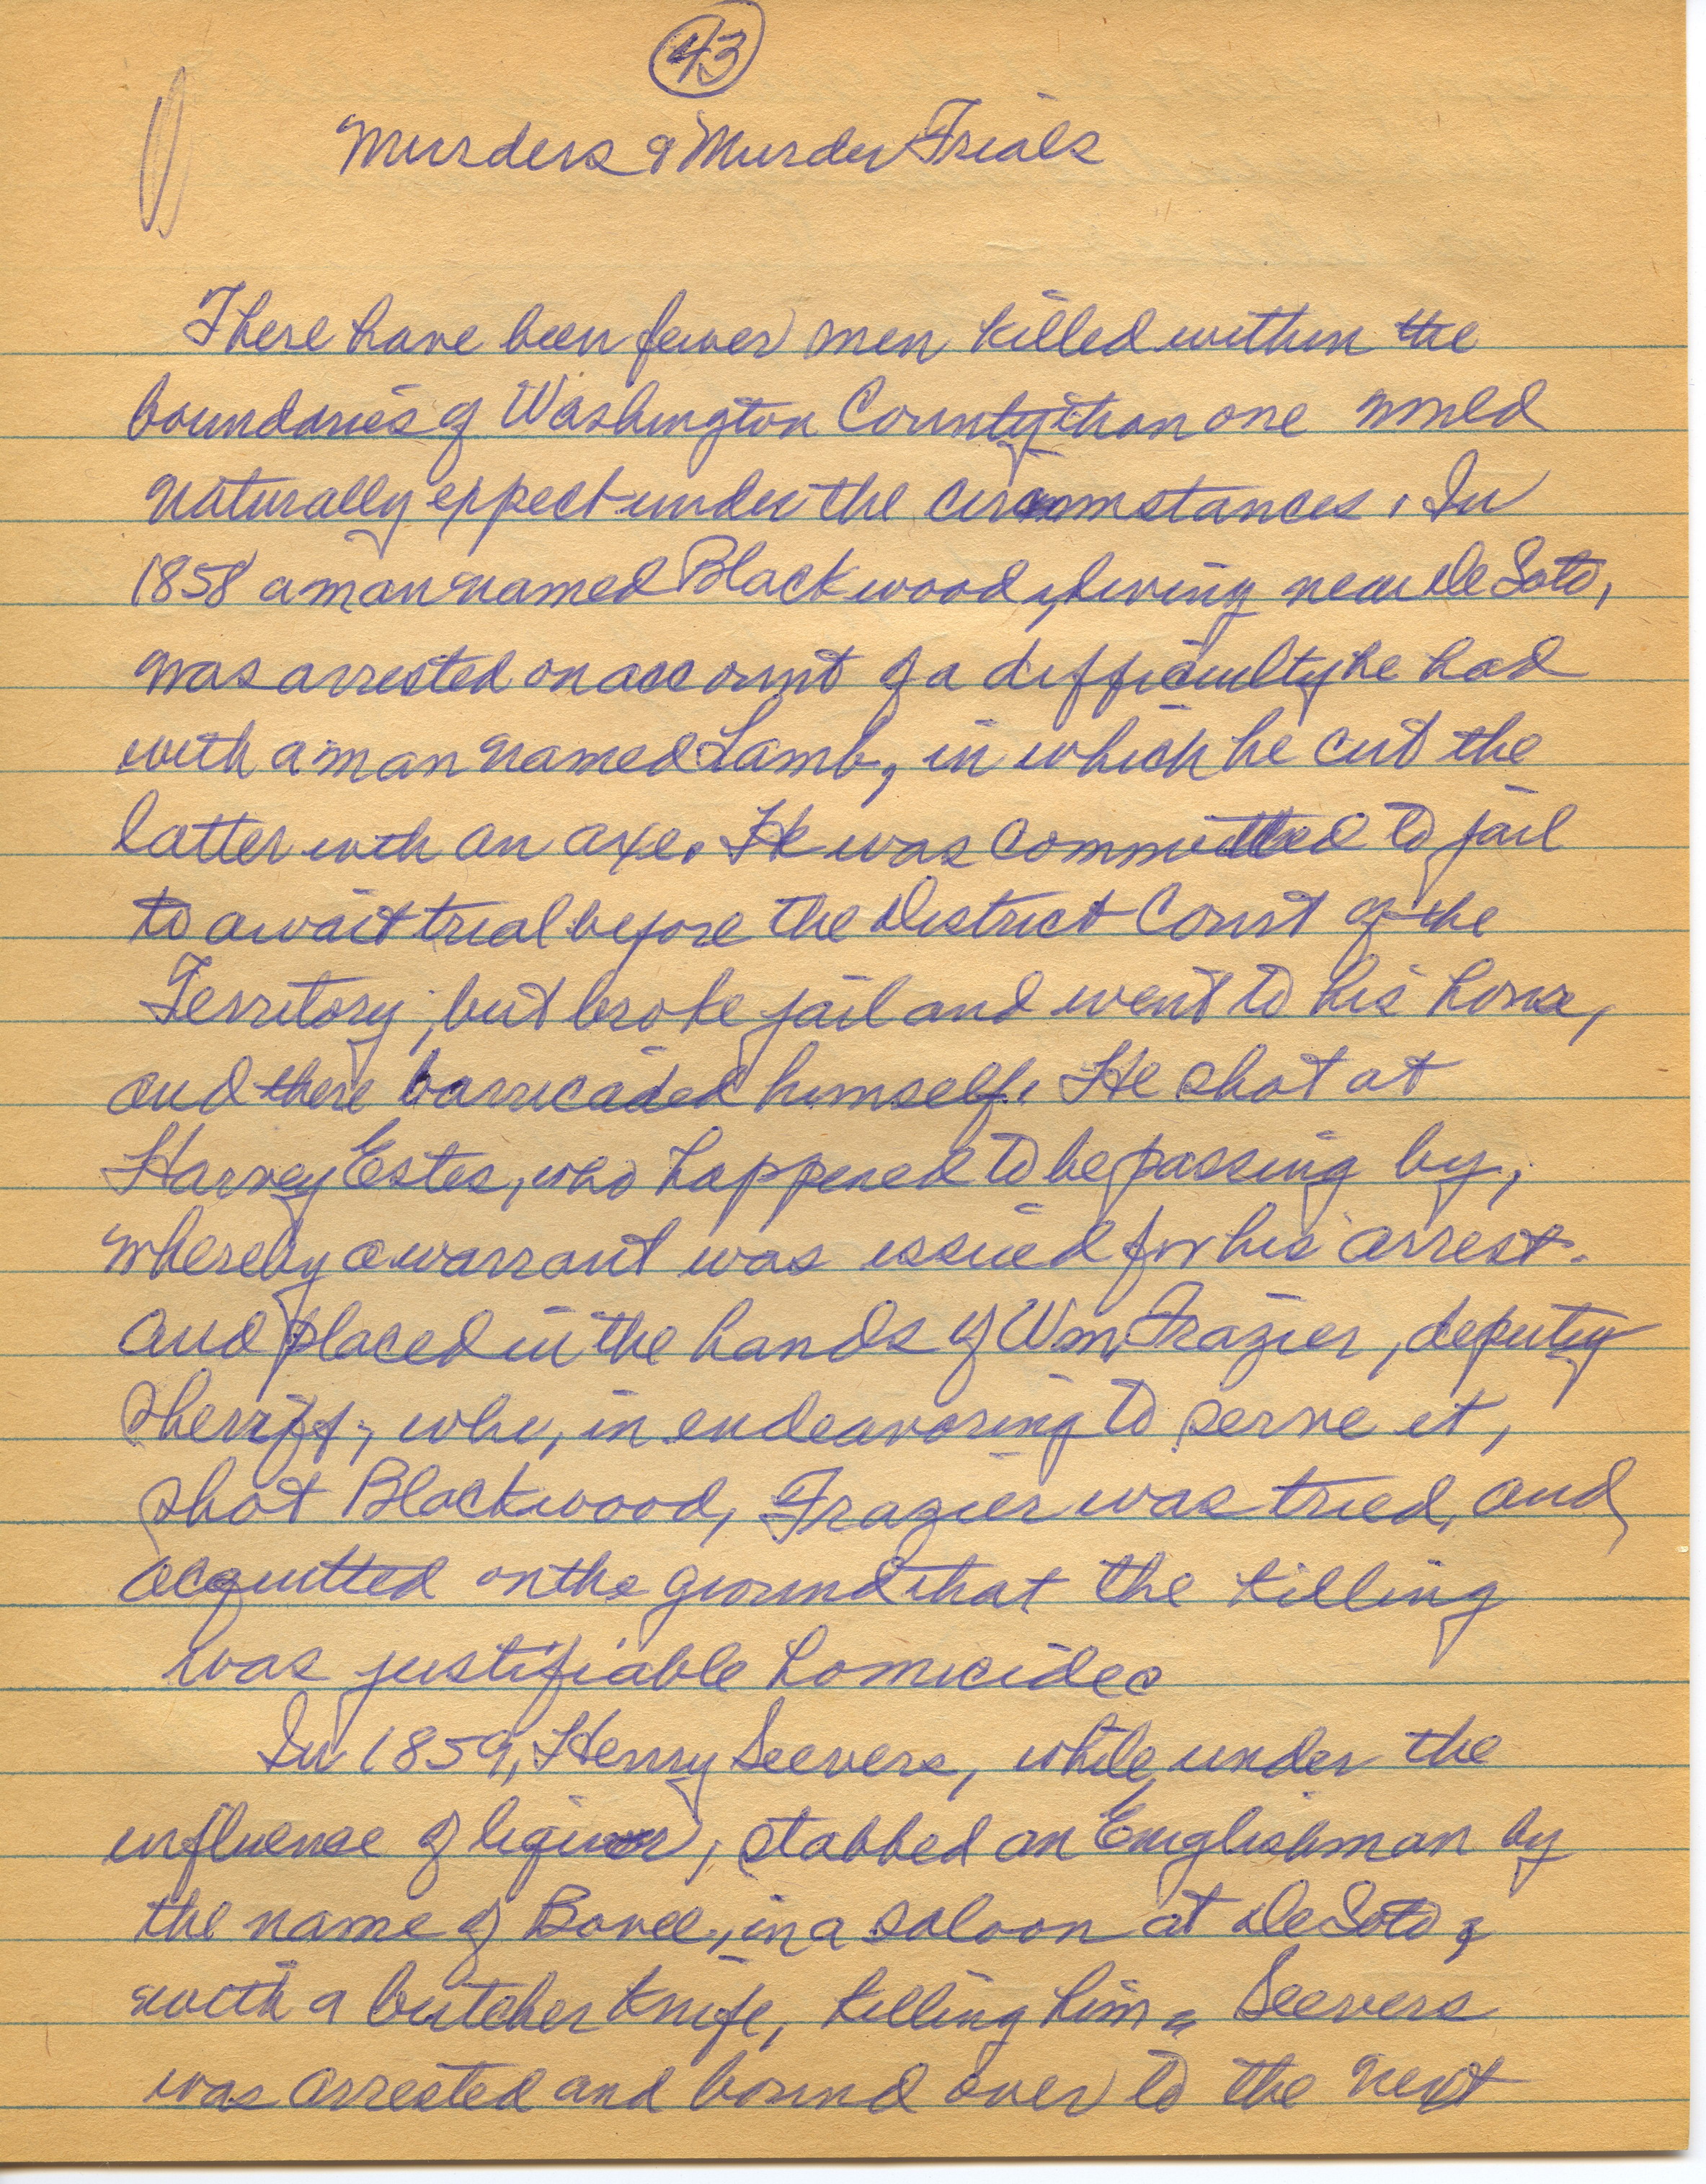 43
Murders & Murder Trials
There have been fewer men killed within the
boundaries of Washington County than one would
naturally expect under the circumstances. In
1858 a man named Blackwood, living near De Soto,
was arrested on account of a difficulty he had
with a man named Lamb, in which he cut the
latter with an axe. He was committed to jail
to await trial before the District Court of the
Territory, but broke jail and went to his home,
and there barricaded himself. He shot at
Harvey Estes, who happened to be passing by,
whereby a warrant was issued for his arrest.
and placed in the hands of Wm. Frazier, deputy
sheriff, who, in endeavoring to serve it,
shot Blackwood, Frazier was tried, and
acquitted on the ground that the killing
was justifiable homicide.
In 1859, Henry Seevers, while under the
influence of liquor, stabbed an Englishman by
the name of Bovee, in a saloon at De Soto,
with a butcher knife, killing him. Seevers
was arrested and bound over to the next